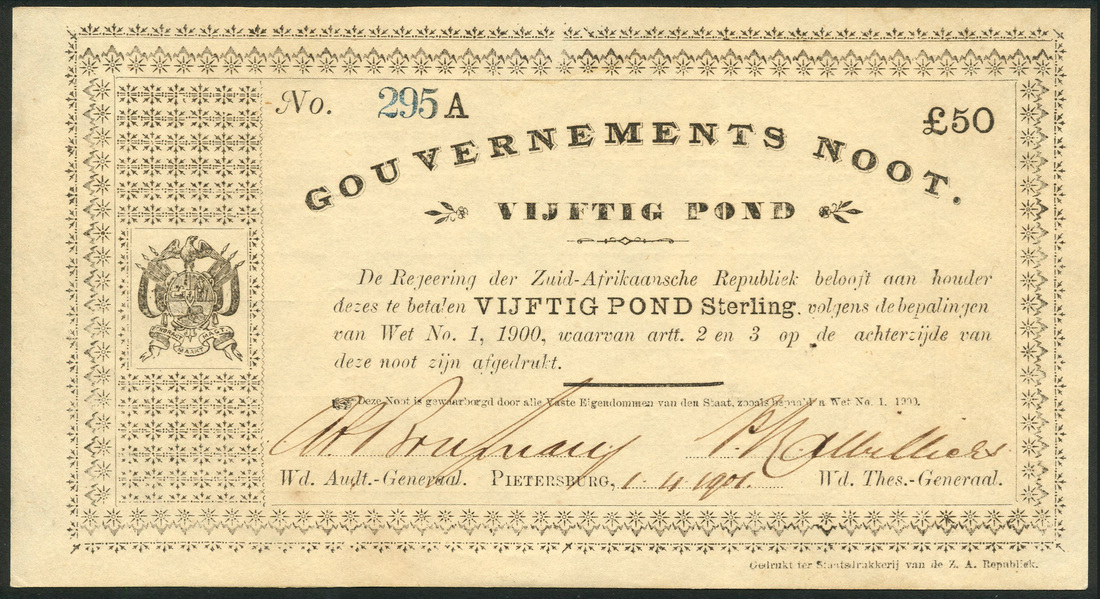 No. 295 A £50
GOUVERNEMENTS NOOT.
VIJFTIG POND
De Regeering der Zuid-Afrikaansche Republiek belooft aan houder
dezes te betalen VIJFTIG POND Sterling, volgens de bepalingen
van Wet No. 1, 1900, waarvan artt. 2 en 3 op de achterzijde van
deze noot zijn afgedrukt.
Deze Noot is gewaarborgd door alle Vaste Eigendommen van den Staat, zooals bepaald in Wet No. 1. 1900.
Wd. Audt.-Generaal. PIETERSBURG, 1.4.1901. Wd. Thes.-Generaal.
Gedrukt ter Staatsdrukkerij van de Z. A. Republiek.